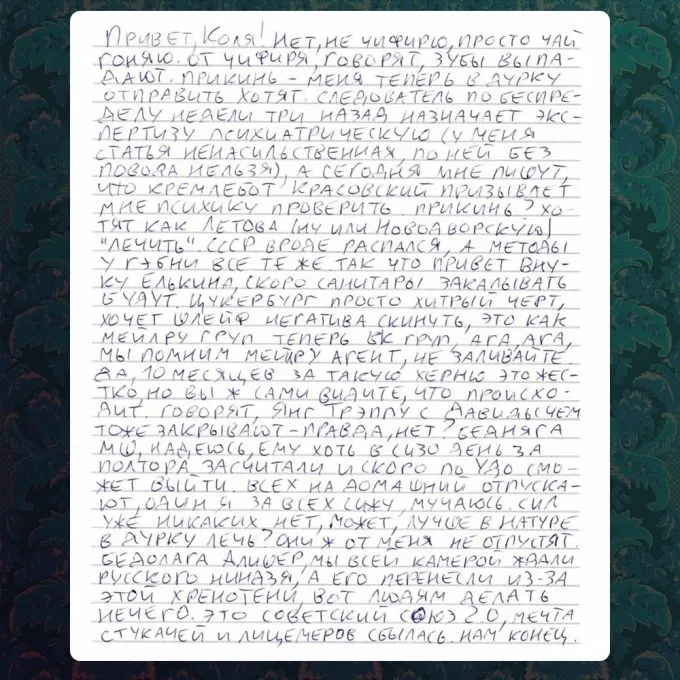 ПРИВЕТ, КОЛЯ! НЕТ, НЕ ЧИФИРЮ, ПРОСТО ЧАЙ
ГОНЯЮ. ОТ ЧИФИРЯ, ГОВОРЯТ, ЗУБЫ ВЫПА-
ДАЮТ. ПРИКИНЬ – МЕНЯ ТЕПЕРЬ В ДУРКУ
ОТПРАВИТЬ ХОТЯТ. СЛЕДОВАТЕЛЬ ПО БЕСПРЕ-
ДЕЛУ НЕДЕЛИ ТРИ НАЗАД НАЗНАЧАЕТ ЭКС-
ПЕРТИЗУ ПСИХИАТРИЧЕСКУЮ (У МЕНЯ
СТАТЬЯ НЕНАСИЛЬСТВЕННАЯ, ПО НЕЙ БЕЗ
ПОВОДА НЕЛЬЗЯ), А СЕГОДНЯ МНЕ ПИШУТ,
ЧТО КРЕМЛЕБОТ КРАСОВСКИЙ ПРИЗЫВАЕТ
МНЕ ПСИХИКУ ПРОВЕРИТЬ. ПРИКИНЬ? ХО-
ТЯТ КАК ЛЕТОВА (НУ ИЛИ НОВОДВОРСКУЮ)
"ЛЕЧИТЬ". СССР ВРОДЕ РАСПАЛСЯ, А МЕТОДЫ
У ГЭБНИ ВСЕ ТЕ ЖЕ. ТАК ЧТО ПРИВЕТ ВНУ-
КУ ЕЛЬКИНА, СКОРО САНИТАРЫ ЗАКАЛЫВАТЬ
БУДУТ. ЦУКЕРБУРГ ПРОСТО ХИТРЫЙ ЧЕРТ,
ХОЧЕТ ШЛЕЙФ НЕГАТИВА СКИНУТЬ, ЭТО КАК
МЕЙЛРУ ГРУП ТЕПЕРЬ ВК ГРУП, АГА, АГА,
МЫ ПОМНИМ МЕЙРУ АГЕНТ, НЕ ЗАЛИВАЙТЕ
ДА, 10 МЕСЯЦЕВ ЗА ТАКУЮ ХЕРНЮ ЭТО ЖЕС-
ТКО, НО ВЫ Ж САМИ ВИДИТЕ, ЧТО ПРОИСХО-
ДИТ. ГОВОРЯТ, ЯНГ ТРЭППУ С ДАВИДЫЧЕМ
ТОЖЕ ЗАКРЫВАЮТ – ПРАВДА, НЕТ? БЕДНЯГА
МШ, НАДЕЮСЬ, ЕМУ ХОТЬ В СИЗО ДЕНЬ ЗА
ПОЛТОРА ЗАСЧИТАЛИ И СКОРО ПО УДО СМО-
ЖЕТ ВЫЙТИ. ВСЕХ НА ДОМАШНИЙ ОТПУСКА-
ЮТ, ОДИН Я ЗА ВСЕХ СИЖУ, МУЧАЮСЬ. СИЛ
УЖЕ НИКАКИХ НЕТ, МОЖЕТ, ЛУЧШЕ В НАТУРЕ
В ДУРКУ ЛЕЧЬ? ОНИ Ж ОТ МЕНЯ НЕ ОТПУСТЯТ.
БЕДОЛАГА АЛИШЕР, МЫ ВСЕЙ КАМЕРОЙ ЖДАЛИ
РУССКОГО НИНДЗЯ, А ЕГО ПЕРЕНЕСЛИ ИЗ-ЗА
ЭТОЙ ХРЕНОТЕНИ. ВОТ ЛЮДЯМ ДЕЛАТЬ
НЕЧЕГО. ЭТО СОВЕТСКИЙ СОЮЗ 2.0, МЕЧТА
СТУКАЧЕЙ И ЛИЦЕМЕРОВ СБЫЛАСЬ. НАМ КОНЕЦ.